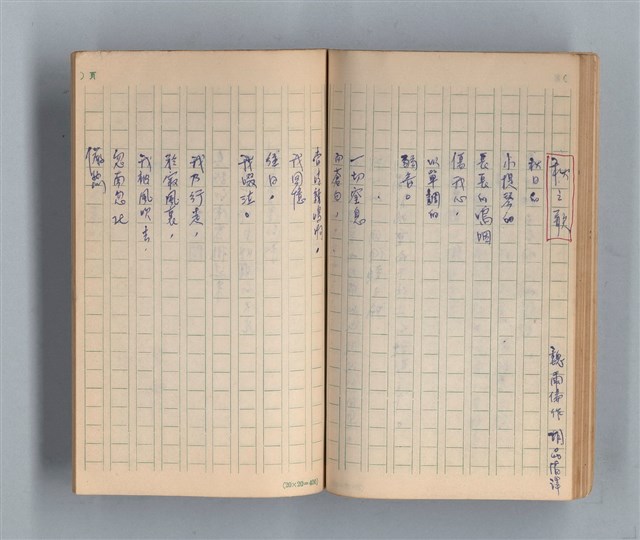 秋之歌
魏爾倫作 胡品清譯
秋日的
小提琴的
長長的嗚咽
傷我心，
以單調的
弱音。
一切窒息
而蒼白，
當時辰鳴時，
我回憶
往日，
我啜泣。
我乃行走，
於寂風裏，
我被風吹去，
忽南忽北
(20×20=400)